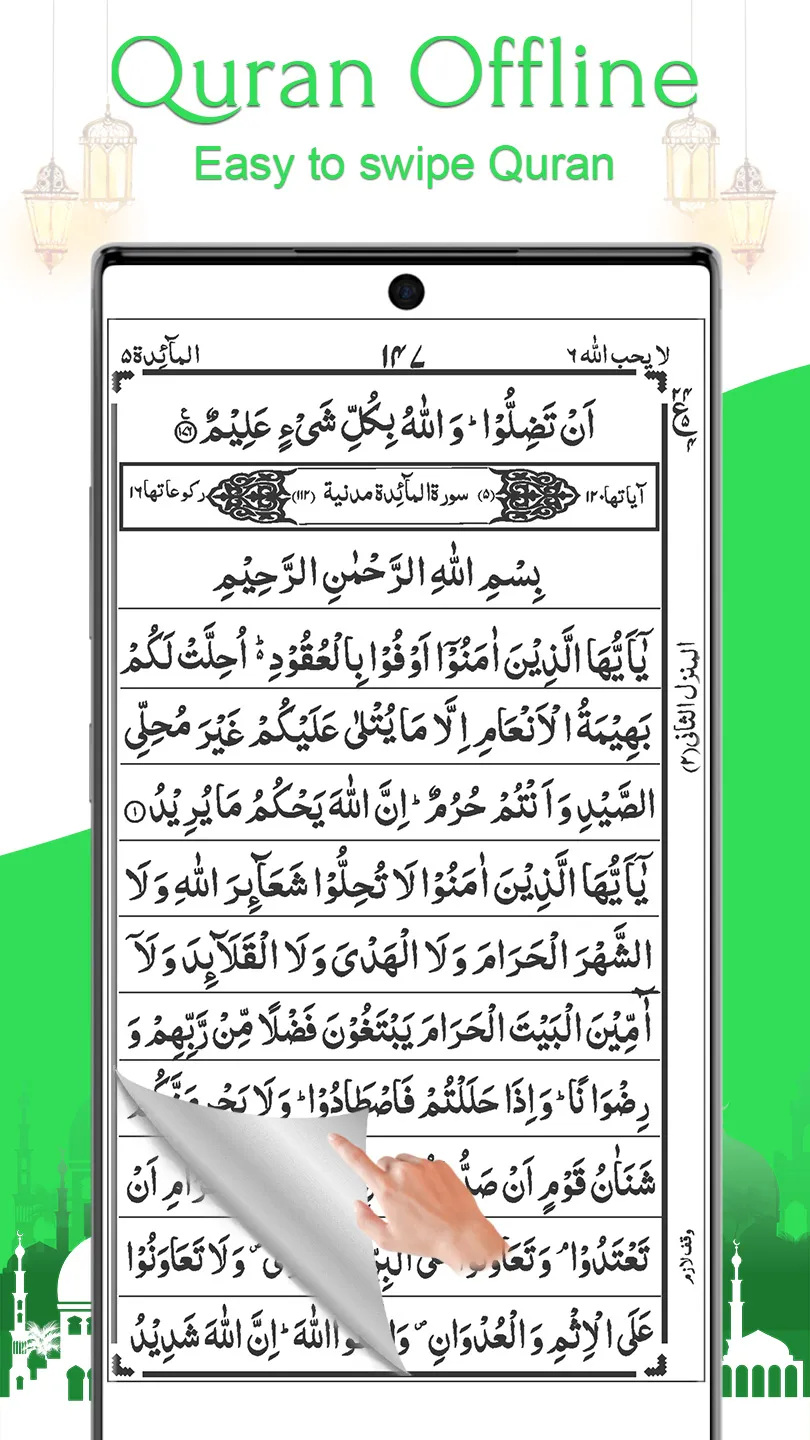 Quran Offline
Easy to swipe Quran
لا يحب الله ٦
١٤٧
المآئدة ٥
اَنْ تَضِلُّوْا ؕ وَ اللّٰهُ بِكُلِّ شَیْءٍ عَلِیْمٌ ﴿١٧٦﴾
٢٤
ع
٥
٤
آیاتها ١٢٠ (٥) سورة المآئدة مدنية (١١٢) رکوعاتها ١٦
بِسْمِ اللّٰهِ الرَّحْمٰنِ الرَّحِیْمِ
یٰۤاَیُّهَا الَّذِیْنَ اٰمَنُوْۤا اَوْفُوْا بِالْعُقُوْدِ ؕ۬ اُحِلَّتْ لَكُمْ
بَهِیْمَةُ الْاَنْعَامِ اِلَّا مَا یُتْلٰی عَلَیْكُمْ غَیْرَ مُحِلِّی
الصَّیْدِ وَ اَنْتُمْ حُرُمٌ ؕ اِنَّ اللّٰهَ یَحْكُمُ مَا یُرِیْدُ ﴿١﴾
یٰۤاَیُّهَا الَّذِیْنَ اٰمَنُوْا لَا تُحِلُّوْا شَعَآىِٕرَ اللّٰهِ وَ لَا
الشَّهْرَ الْحَرَامَ وَ لَا الْهَدْیَ وَ لَا الْقَلَآىِٕدَ وَ لَاۤ
آٰمِّیْنَ الْبَیْتَ الْحَرَامَ یَبْتَغُوْنَ فَضْلًا مِّنْ رَّبِّهِمْ وَ
رِضْوَانًا ؕ وَ اِذَا حَلَلْتُمْ فَاصْطَادُوْا ؕ وَ لَا یَجْرِمَنَّكُمْ
شَنَاٰنُ قَوْمٍ اَنْ اَنْ
تَعْتَدُوْا ۘ وَ لَا تَعَاوَنُوْا
عَلَی الْاِثْمِ وَ الْعُدْوَانِ ۪ اللّٰهَ ؕ اِنَّ اللّٰهَ شَدِیْدُ
المنزل الثانی (٢)
وقف لازم